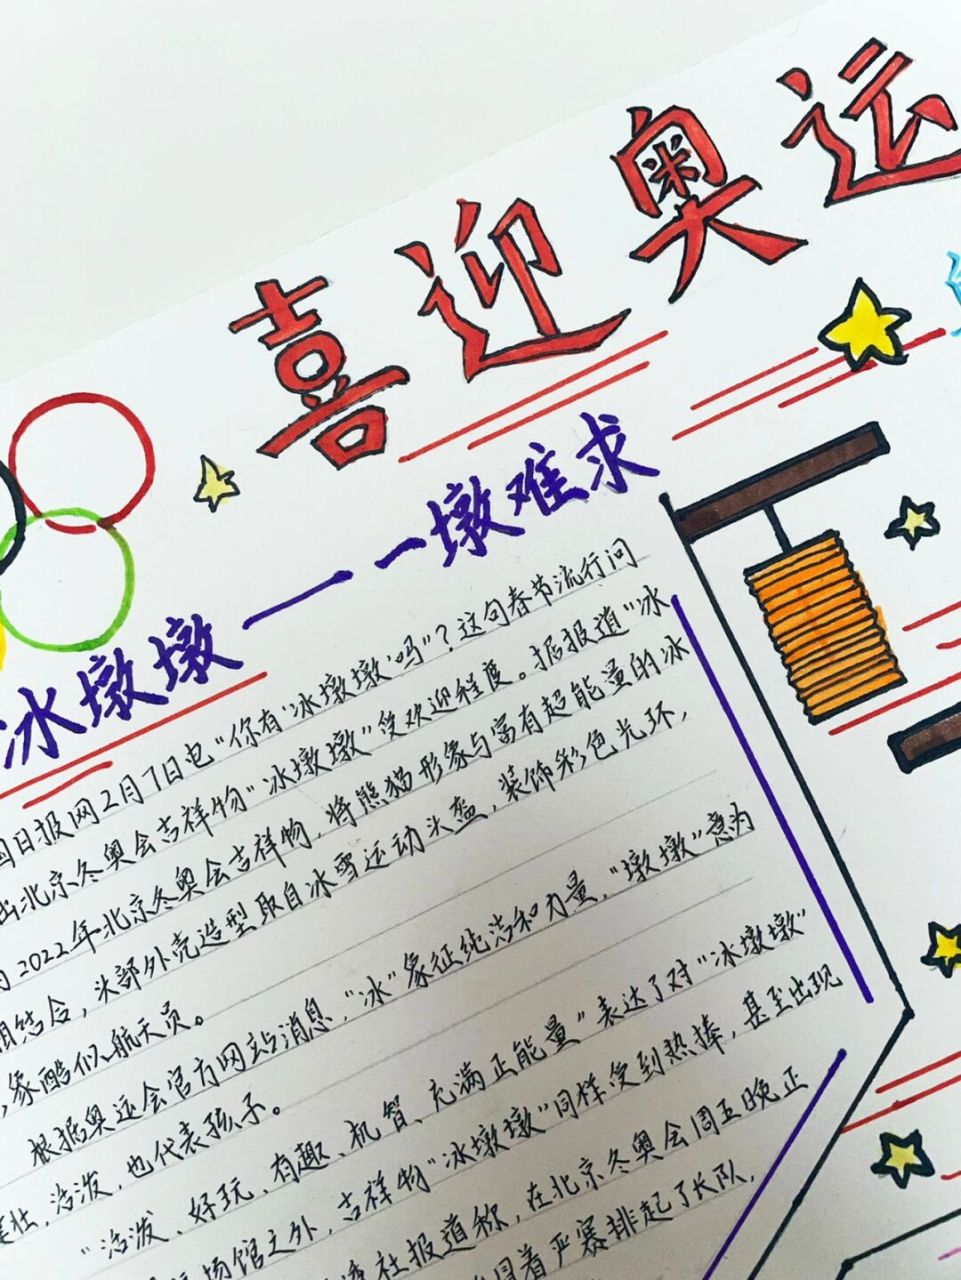 喜迎奥运
冰墩墩——一墩难求
国日报网2月7日电“你有‘冰墩墩’吗”？这句春节流行问
出北京冬奥会吉祥物“冰墩墩”受欢迎程度。据报道“冰
2022年北京冬奥会吉祥物，将熊猫形象与富有超能量的冰
相结合，头部外壳造型取自冰雪运动头盔，装饰彩色光环，
象酷似航天员。
根据奥运会官方网站消息，“冰”象征纯洁和力量，“墩墩”意为
壮，活泼，也代表孩子。
“活泼、好玩、有趣、机智、充满正能量”表达了对“冰墩墩”
场馆之外，吉祥物“冰墩墩”同样受到热捧，甚至出现
社报道称，在北京冬奥会周五晚正
冒着严寒排起了长队，